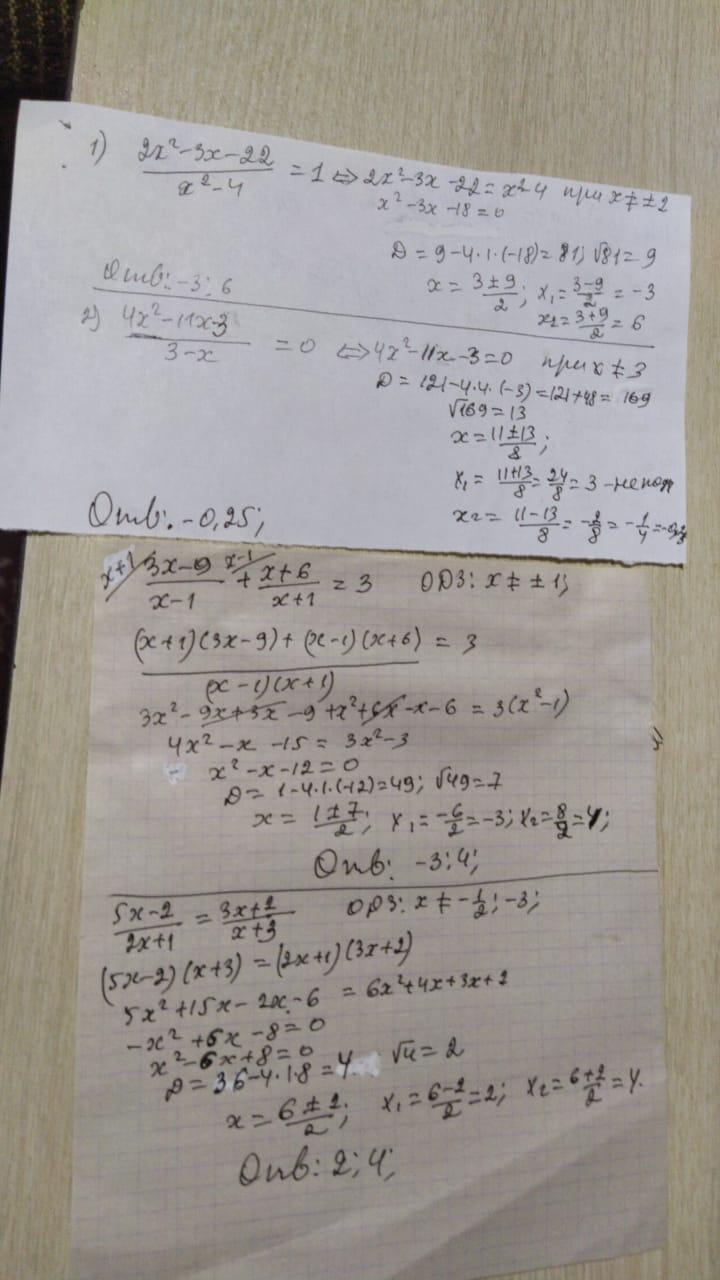 1) (2x²-3x-22)/(x²-4) = 1 ⇔ 2x²-3x-22 = x²-4 при x ≠ ±2
x²-3x-18=0
D = 9-4·1·(-18) = 81; √81 = 9
x = (3±9)/2; x₁ = (3-9)/2 = -3
x₂ = (3+9)/2 = 6
Отв: -3; 6
2) (4x²-11x-3)/(3-x) = 0 ⇔ 4x²-11x-3=0 при x ≠ 3
D = 121-4·4·(-3) = 121+48 = 169
√169 = 13
x = (11±13)/8;
x₁ = (11+13)/8 = 24/8 = 3 - не
x₂ = (11-13)/8 = -2/8 = -1/4 =
Отв. -0,25;
x+1/ (3x-9)/(x-1) + x-1/ (x+6)/(x+1) = 3 ОДЗ: x ≠ ±1;
((x+1)(3x-9)+(x-1)(x+6))/((x-1)(x+1)) = 3
3x²-9x+3x-9+x²+6x-x-6 = 3(x²-1)
4x²-x-15 = 3x²-3
x²-x-12=0
D = 1-4·1·(-12) = 49; √49 = 7
x = (1±7)/2; x₁ = -6/2 = -3; x₂ = 8/2 = 4;
Отв: -3; 4;
(5x-2)/(2x+1) = (3x+2)/(x+3) ОДЗ: x ≠ -1/2; -3;
(5x-2)(x+3) = (2x+1)(3x+2)
5x²+15x-2x-6 = 6x²+4x+3x+2
-x²+6x-8=0
x²-6x+8=0
D = 36-4·1·8 = 4 √4 = 2
x = (6±2)/2; x₁ = (6-2)/2 = 2; x₂ = (6+2)/2 = 4.
Отв: 2; 4;